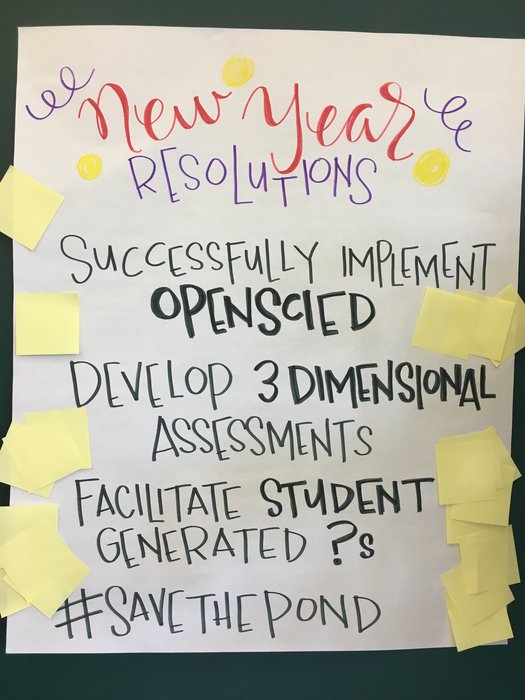 New Year
RESOLUTIONS
SUCCESSFULLY IMPLEMENT
OPENSCIED
DEVELOP 3 DIMENSIONAL
ASSESSMENTS
FACILITATE STUDENT
GENERATED ?s
#SAVETHEPOND